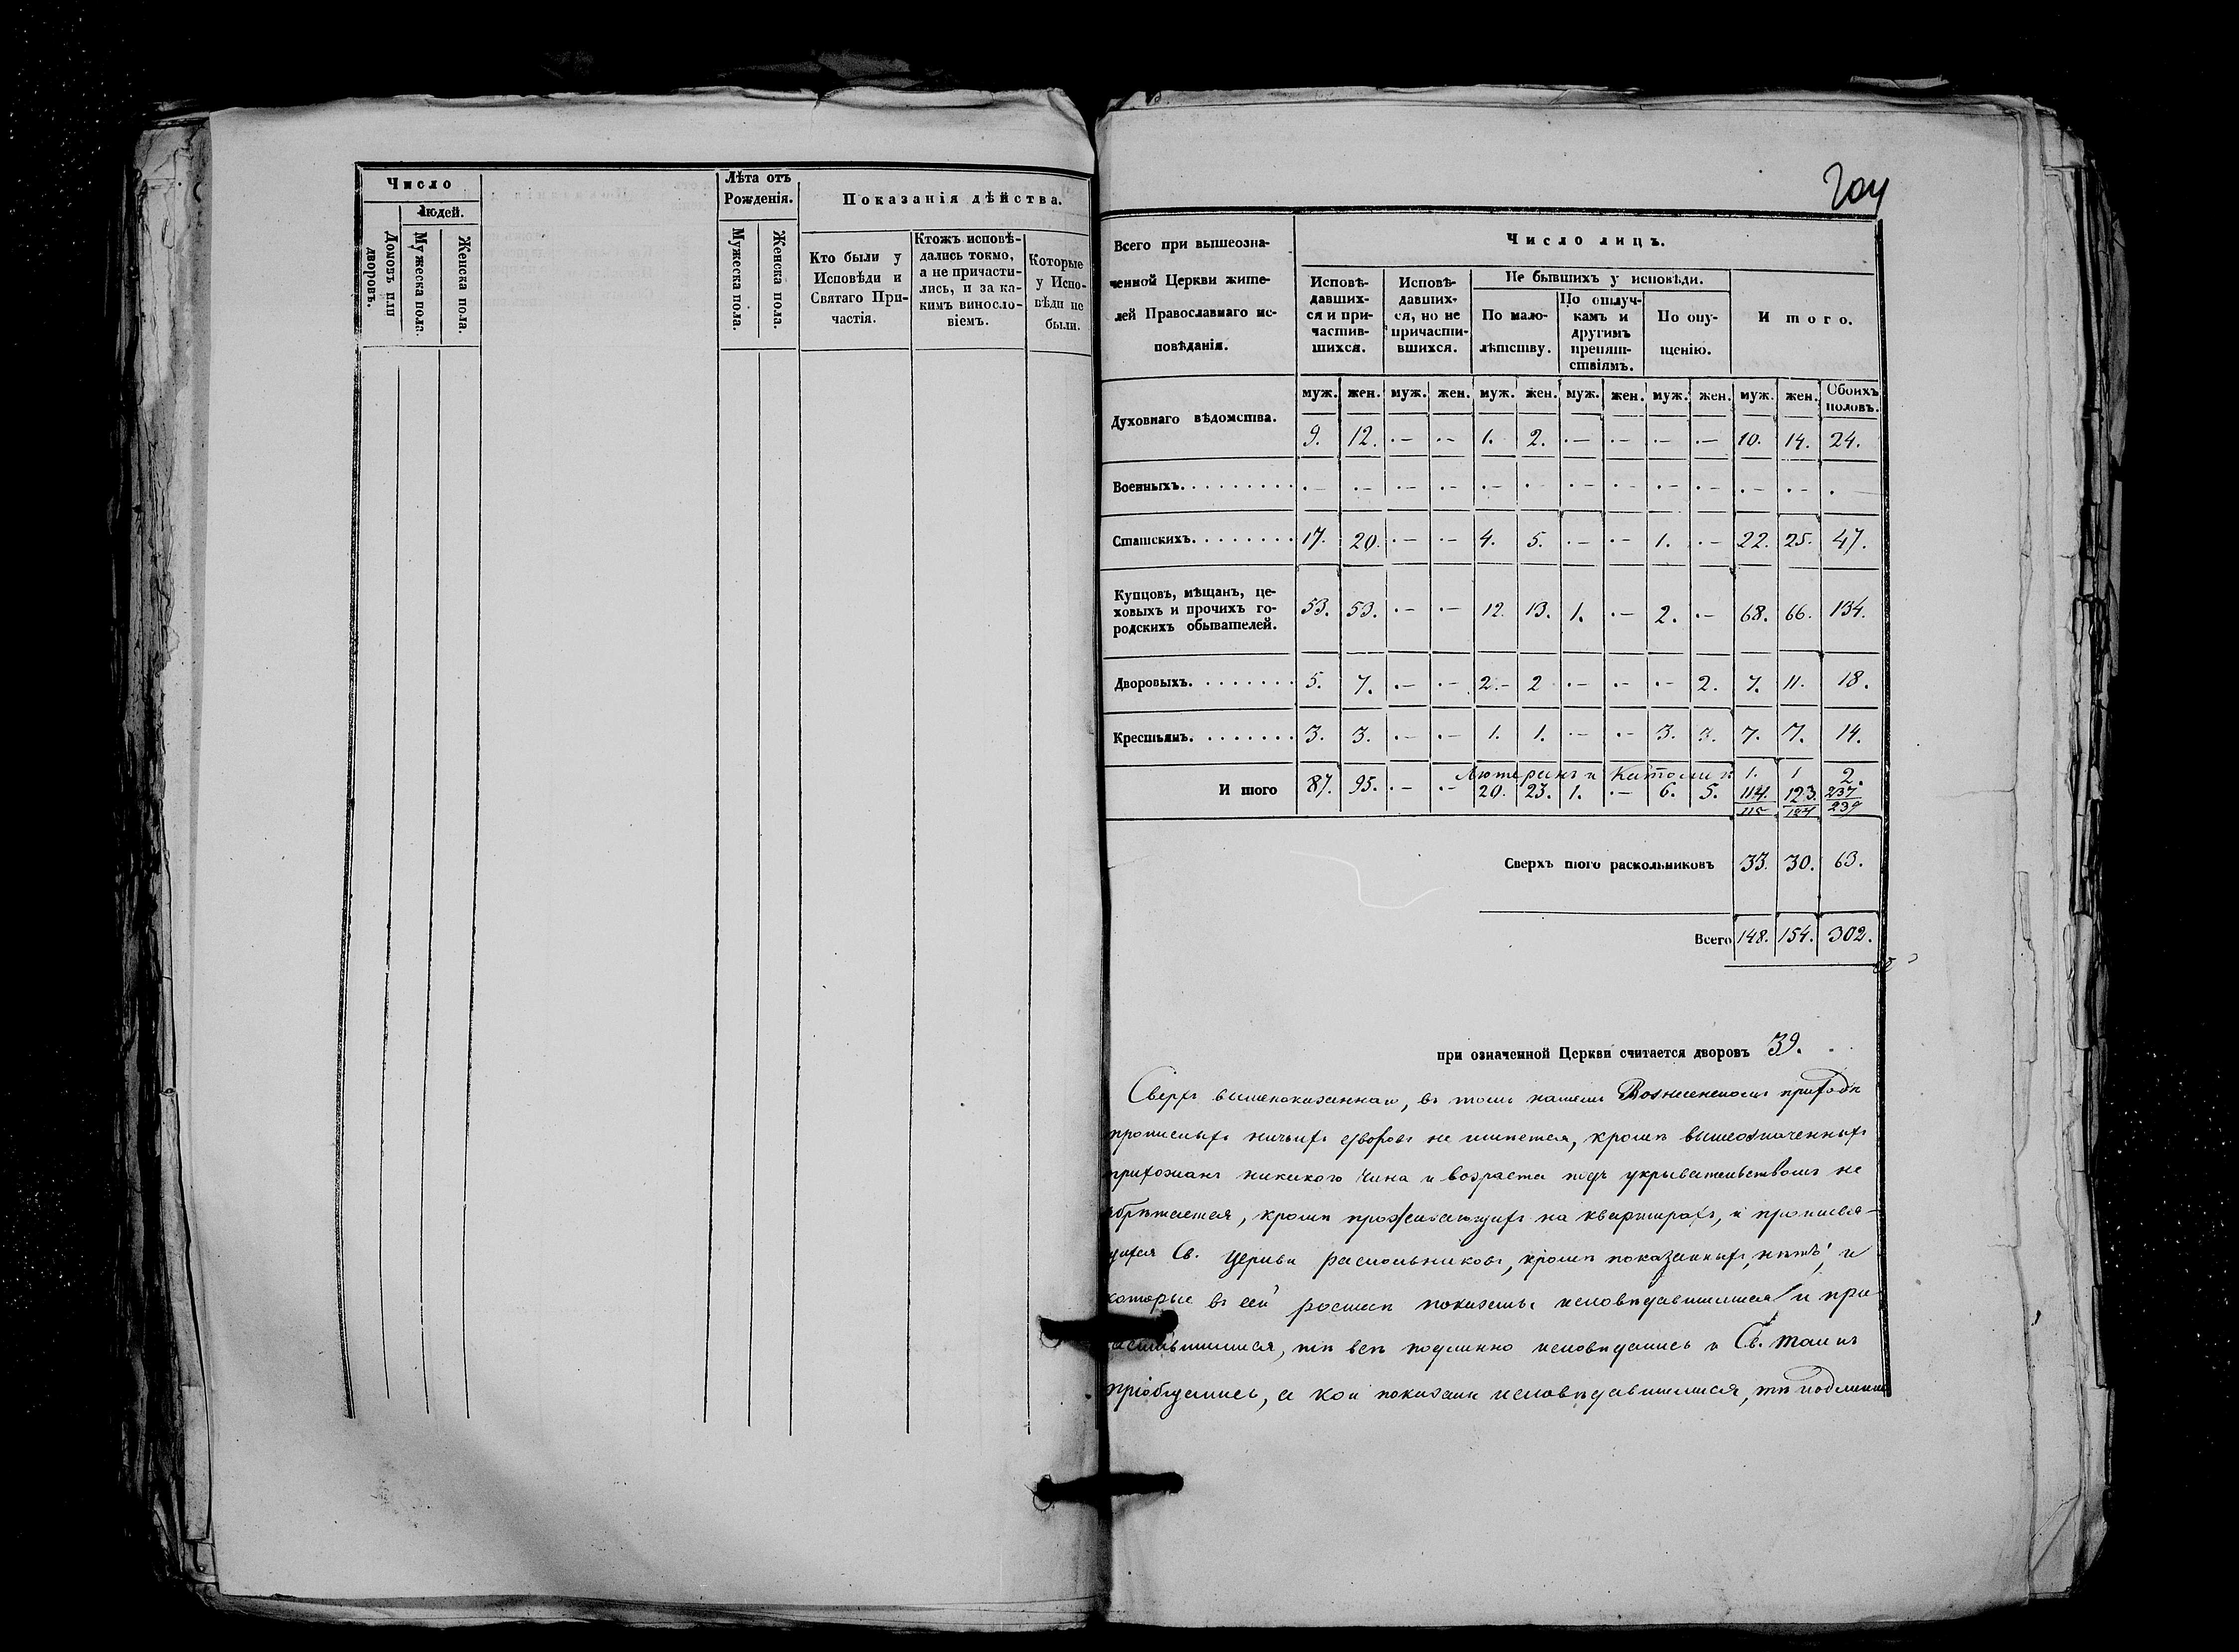 Число
Людей.
Домовъ или дворовъ.
Мужеска пола.
Женска пола.
Лѣта отъ
Рожденія.
Мужеска пола.
Женска пола.
Показанія дѣйства.
Кто были у
Исповѣди и
Святаго При-
частія.
Ктожъ исповѣ-
дались токмо,
а не причасти-
лись, и за ка-
кимъ винosло-
віемъ.
Которые
у Испо-
вѣди не
были.
204
Всего при вышеозна-
ченной Церкви жите-
лей Православнаго ис-
повѣданія.
Число лицъ.
Исповѣ-
давших-
ся и при-
частив-
шихся.
Исповѣ-
давших-
ся, но не
причасти-
вшихся.
Не бывшихъ у исповѣди.
По мало-
лѣтству.
По отлуч-
камъ и
другимъ
препят-
ствіямъ.
По опу-
щенію.
Итого.
муж. жен. муж. жен. муж. жен. муж. жен. муж. жен. муж. жен. Обоихъ половъ.
Духовнаго вѣдомства. 9. 12. .— .— 1. 2. .— .— .— .— 10. 14. 24.
Военныхъ. .— .— .— .— .— .— .— .— .— .— .— .— .
Статскихъ. 17. 20. .— .— 4. 5. .— .— 1. .— 22. 25. 47.
Купцовъ, мѣщанъ, це-
ховыхъ и прочихъ го-
родскихъ обывателей. 53. 53. .— .— 12. 13. 1. .— 2. .— 68. 66. 134.
Дворовыхъ. 5. 7. .— .— 2.— 2 .— .— .— 2. 7. 11. 18.
Крестьянъ. 3. 3. .— .— 1. 1. .— .— 3. 3. 7. 7. 14.
Лютеранъ и Католик 1. 1 2.
И того 87. 95. .— .— 20. 23. 1. .— 6. 5. 114. 123. 237
115 124 239
Сверхъ того раскольниковъ 33. 30. 63.
Всего 148. 154. 302.
при означенной Церкви считается дворовъ 39.
Сверхъ вышепоказаннаго, въ томъ нашемъ Вознесенскомъ приходѣ
прописныхъ ничьихъ дворовъ не имѣется, кромѣ вышеозначенныхъ
прихожанъ никакого чина и возраста подъ укрывательствомъ не
обрѣтается, кромѣ проживающихъ на квартирахъ, и
Св. Церкви раскольниковъ, кромѣ показанныхъ, нѣтъ, и
которые въ сей росписи показаны исповѣдавшимися и при
частившимися, тѣ всѣ подлинно исповѣдались и Св. Таинъ
пріобщились, а кои показаны исповѣдавшимися, тѣ подлинно